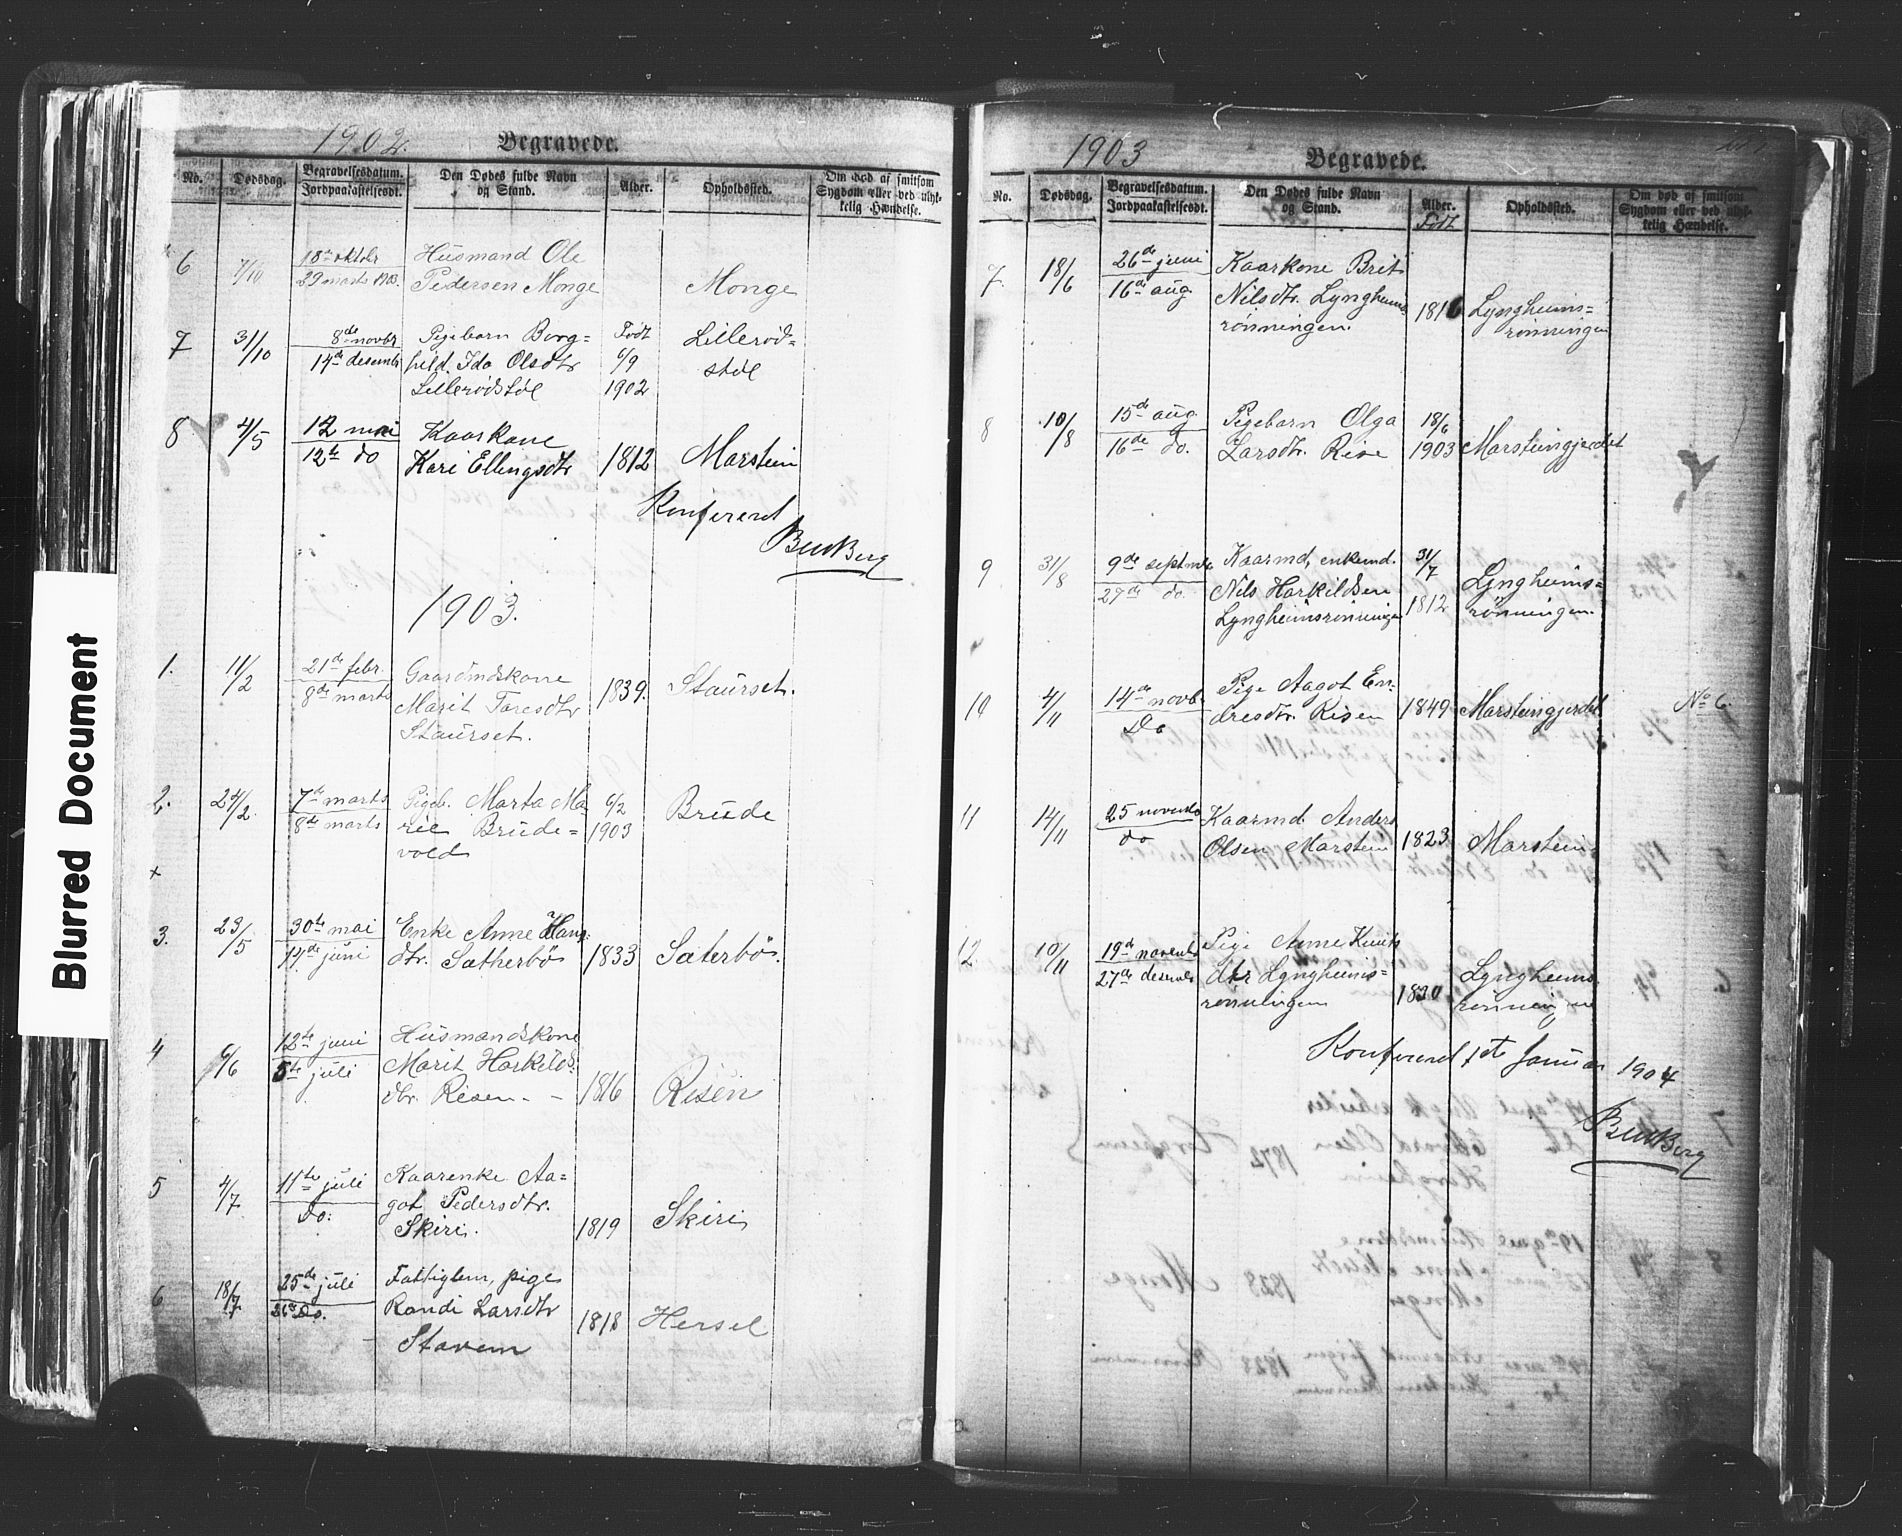 Blurred Document
1902.
Begravede.
No. Dødsdag. Begravelsesdatum. Jordpaakastelsesdt. Den Dødes fulde Navn og Stand. Alder. Opholdssted. Om død af smitsom Sygdom eller ved ulykkelig Hændelse.
6 7/10 18de oktbr Husmand Ole
29 marts 1903. Pedersen Monge Monge
7 31/10 8de novbr Pigebarn Borg= Født Lillerød=
14de desembr hild Ida Olsdtr 6/9 støl
Lillerødstøl 1902
8 4/5 12 mai Kaarkone
12te do Kari Ellingsdtr 1812 Marstein
Konfereret
BuBerg
1903.
1. 11/2 21de febr. Gaardmdskone
8de marts Marit Toresdtr 1839. Staurset.
Staurset.
2. 24/2. 7de marts Pigeb. Marta Ma 6/2 Brude
8de marts rie Brude= 1903
vold
x
3. 23/5 30te mai Enke Anne Hans
14de juni dtr. Sætherbø 1833 Sæterbø.
4 6/6 12te juni Husmandskone
5te juli Marit Harkilds
dtr. Risen - 1816 Risen
5 4/7 11te juli Kaarenke Aa=
Do. got Pedersdtr.
Skiri. 1819 Skiri
6 18/7 25de juli Fattiglem, pige
26de Do. Randi Larsdtr 1818 Hersel
Stavem
1903
Begravede.
No. Dødsdag. Begravelsesdatum. Jordpaakastelsesdt. Den Dødes fulde Navn og Stand. Alder. Født Opholdssted. Om død af smitsom Sygdom eller ved ulykkelig Hændelse.
7. 18/6 26de juni Kaarkone Brit
16de aug Nilsdtr. Lyngheims 1816 Lyngheims=
rønningen. rønningen
8 10/8 15de aug Pigebarn Olga 18/6
16de do. Larsdtr. Rise 1903 Marsteingjerdet
9 31/8 9de septmbr Kaarmd, enkemd. 31/7
27de do. Nils Harkildsen 1812 Lyngheims=
Lyngheimsrønningen rønningen.
10 4/11 14de novb. Pige Aagot En=
Do dresdtr. Risen 1849 Marsteingjerdet No 6.
11 14/11 25 novembr Kaarmd. Anders
do Olsen Marstein 1823 Marstein
12 10/11 19de novembr Pige Anne Knuts
27de desembr dtr Lyngheims= Lyngheims
rønningen 1830 rønningen
Konfereret 1ste Januar 1904
BuBerg